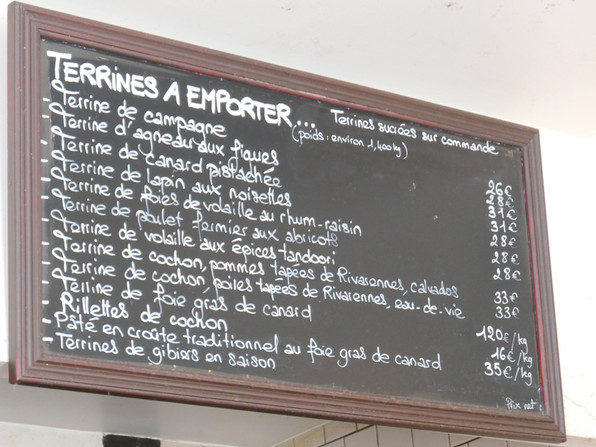 TERRINES A EMPORTER... Terrines sucrées sur commande
(poids: environ 1,400kg)
- Terrine de campagne 26€
- Terrine d'agneau aux figues 28€
- Terrine de canard pistachée 31€
- Terrine de lapin aux noisettes 31€
- Terrine de foies de volaille au rhum-raisin 28€
- Terrine de poulet fermier aux abricots 28€
- Terrine de volaille aux épices tandoori 28€
- Terrine de cochon, pommes tapées de Rivarennes, calvados 33€
- Terrine de cochon, poires tapées de Rivarennes, eau-de-vie 33€
- Terrine de foie gras de canard 120€/kg
- Rillettes de cochon 16€/kg
- Pâté en croûte traditionnel au foie gras de canard 35€/kg
- Terrines de gibiers en saison
Prix net